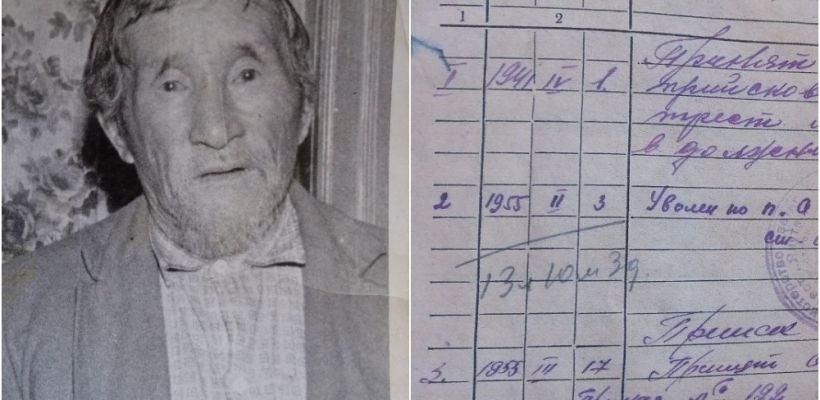 1 2
1 1941 IV 1. Принят
приисков
трест
в должн
2 1955 II 3 Уволен по п. А
ст.
13 л 10 м 3 д.
Прииск
3. 1955 III 17 Принят